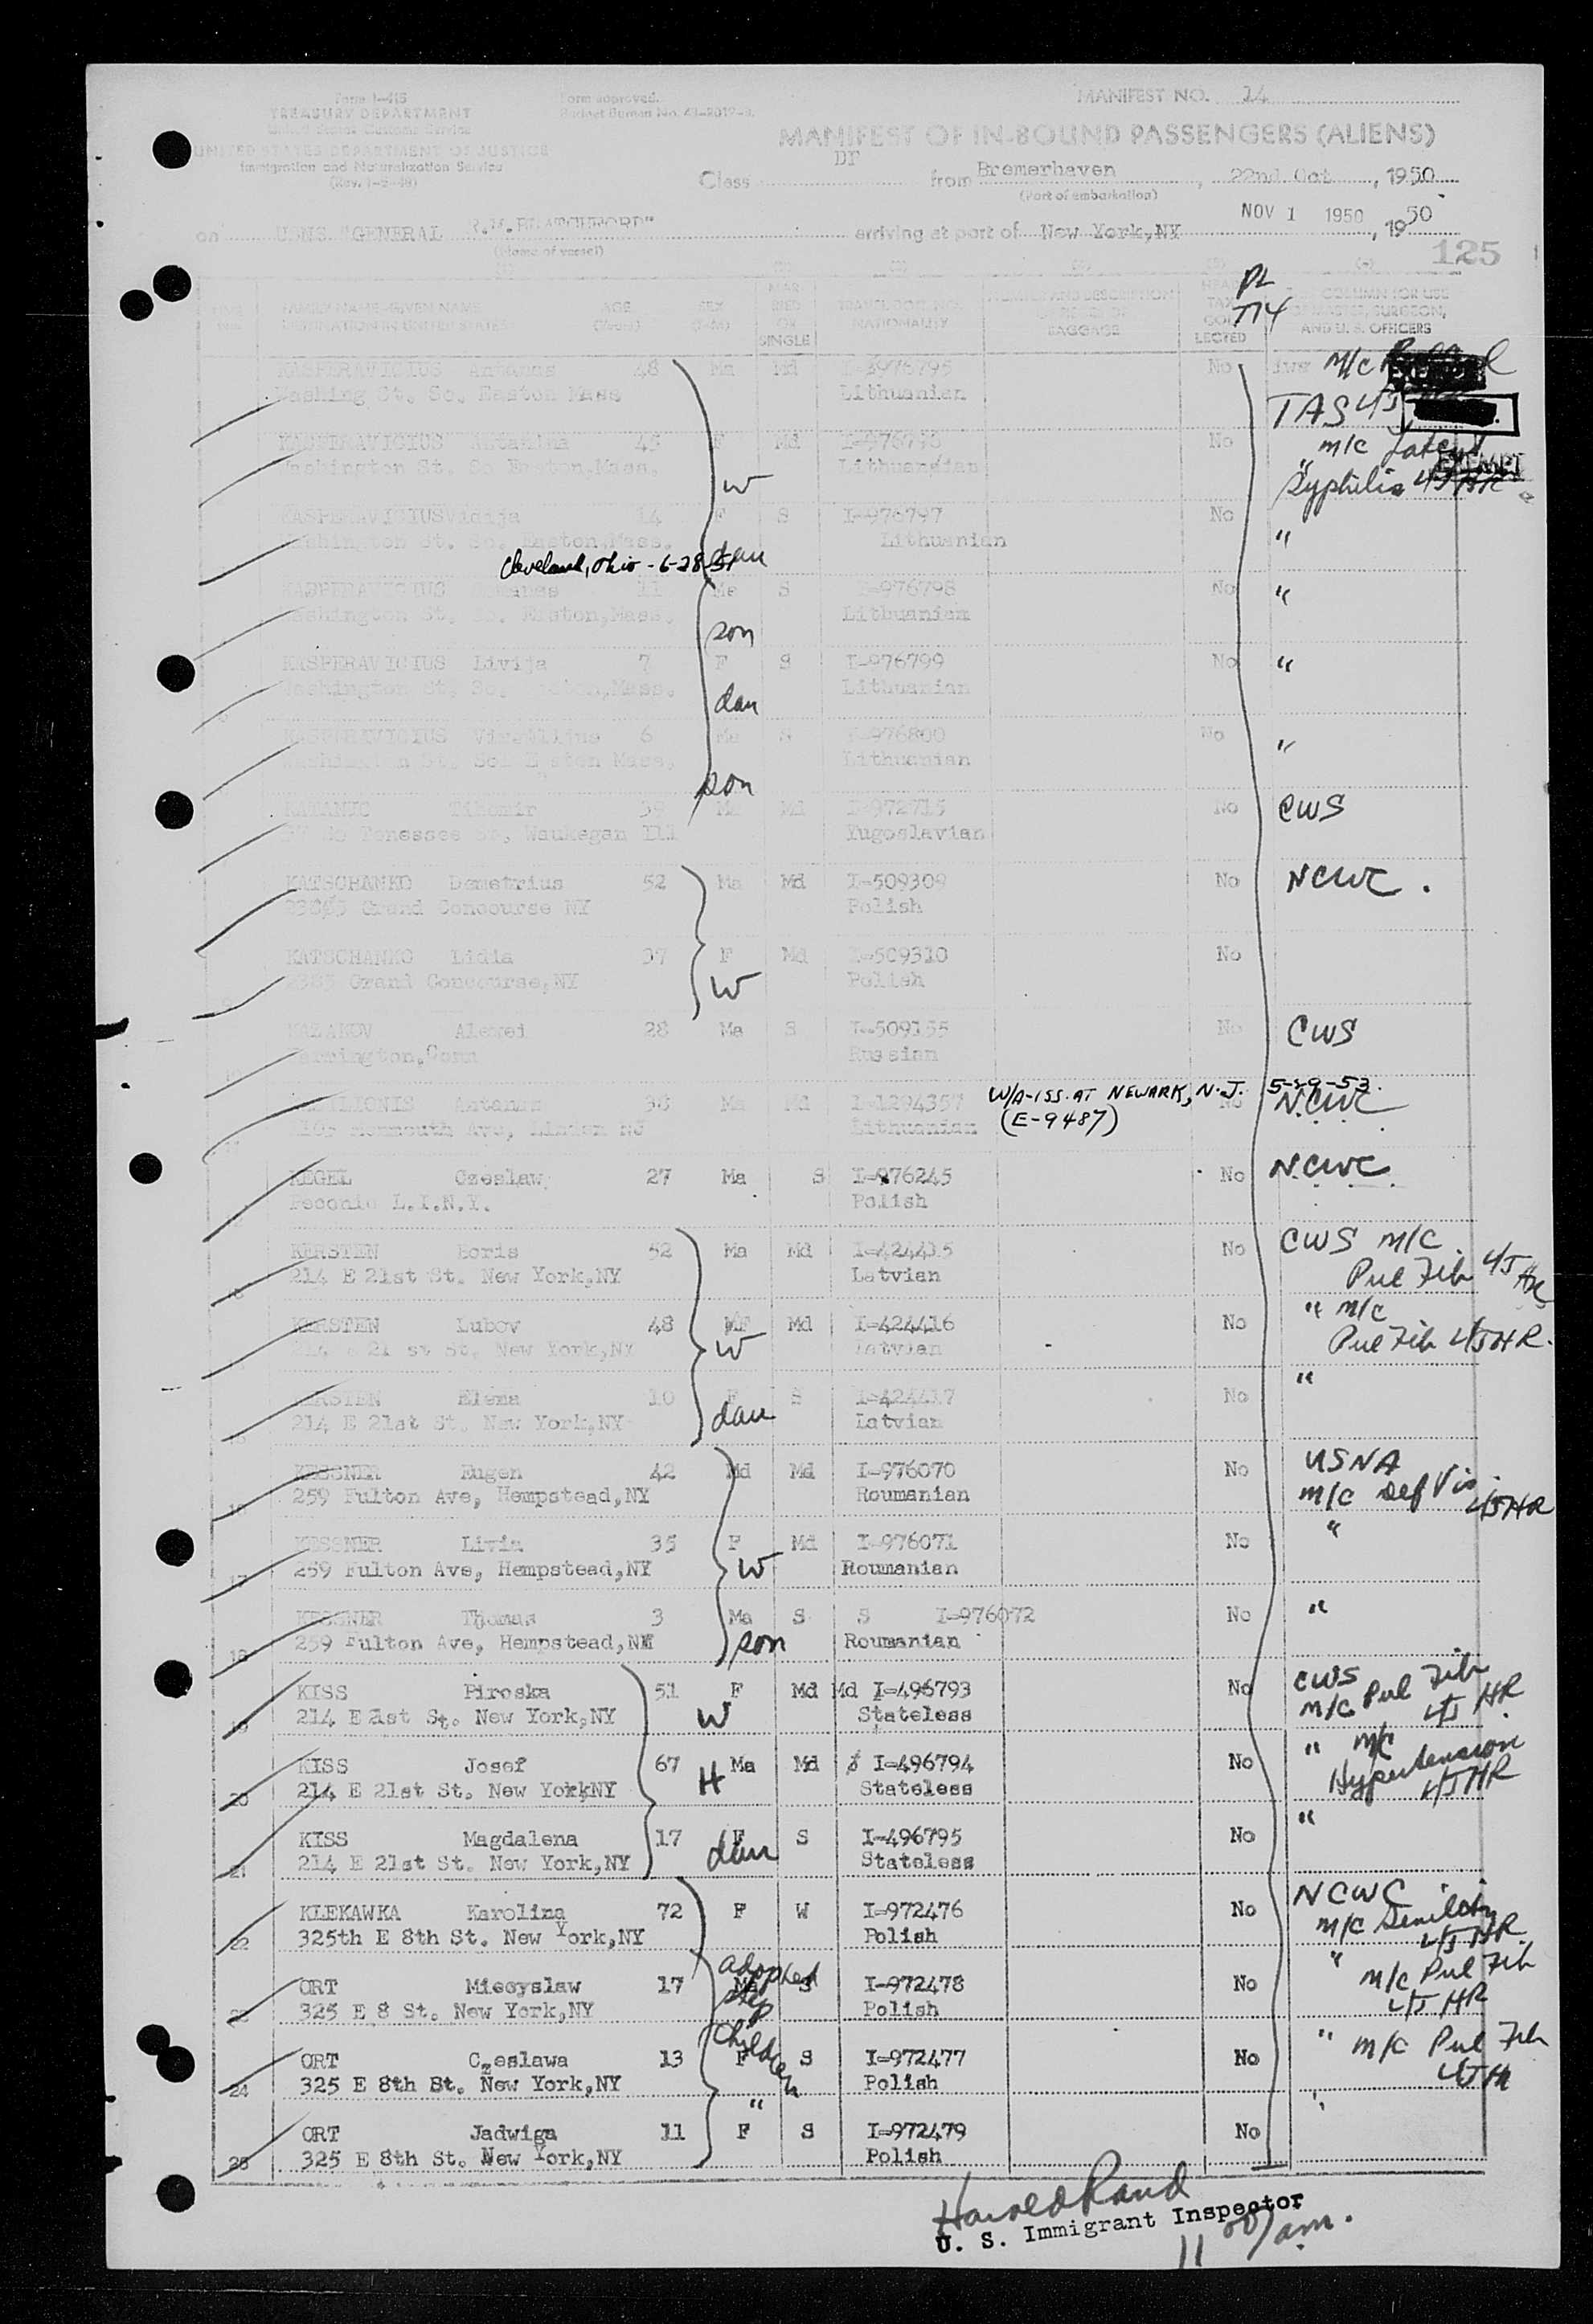 Form I-415
TREASURY DEPARTMENT
United States Customs Service
UNITED STATES DEPARTMENT OF JUSTICE
Immigration and Naturalization Service
Form approved.
MANIFEST NO. 14
MANIFEST OF IN-BOUND PASSENGERS (ALIENS)
Class DP from Bremerhaven, 22nd Oct, 1950
(Port of embarkation)
on USNS "GENERAL R.M.BLATCHFORD" arriving at port of New York,NY NOV 1 1950, 1950
(Name of vessel)
125
FAMILY NAME—GIVEN NAME
DESTINATION IN UNITED STATES
AGE
(Years)
SEX
MARRIED OR SINGLE
TRAVEL DOC. NO.
NATIONALITY
NUMBER AND DESCRIPTION OF PIECES OF BAGGAGE
HEAD TAX COLLECTED
COLUMN FOR USE OF MASTER, SURGEON, AND U. S. OFFICERS
KASPERAVICIUS Antanas 48 Ma Md I-976795 No m/c
Washing St. So. Easton Mass Lithuanian TAS
KASPERAVICIUS 45 F Md No " m/c Latent
Washington St. So Easton,Mass. w Syphilis
KASPERAVICIUS 14 F S I-976797 No "
Washington St. So. Easton,Mass. dau Lithuanian
Cleveland, Ohio - 6-28-51
KASPERAVICIUS 11 Ma S I-976798 No "
Washington St, So. Easton,Mass. son Lithuanian
KASPERAVICIUS Livija 7 F S I-976799 No "
Washington St, So. Easton,Mass. dau Lithuanian
KASPERAVICIUS 6 Ma S I-976800 No "
Washington St. So. Easton Mass. son Lithuanian
Tihomir 39 Ma Md I-972715 No CWS
Tenessee St, Waukegan Ill Yugoslavian
KATSCHANKO Demetrius 52 Ma Md I-509309 No NCWC.
Grand Concourse NY Polish
KATSCHANKO Lidia 37 F Md I-509310 No
2385 Grand Concourse,NY w Polish
KAZAKOV Alexei 28 Ma S I-509155 No CWS
Conn Russian
W/A-ISS. AT NEWARK, N.J. 5-29-53.
(E-9487)
Antanas 38 Ma Md No N.C.W.C
Monmouth Ave, Linden NJ Lithuanian
KEGEL Czeslaw 27 Ma S I-976245 No N.C.W.C.
Peconic L.I.N.Y. Polish
KERSTEN Boris 52 Ma Md I-424415 No CWS m/c
214 E 21st St. New York,NY Latvian Pul Fib HR
KERSTEN Lubov 48 F Md I-424416 No " m/c
214 E 21 st St. New York,NY w Latvian Pul Fib HR.
KERSTEN Elena 10 F S I-424417 No "
214 E 21st St. New York,NY dau Latvian
KESSNER Eugen 42 Md Md I-976070 No USNA
259 Fulton Ave, Hempstead,NY Roumanian m/c Def Vis HR
KESSNER Livia 35 F Md I-976071 No "
17 259 Fulton Ave, Hempstead,NY w Roumanian
KESSNER Thomas 3 Ma S S I-976072 No "
18 259 Fulton Ave, Hempstead,NY son Roumanian
KISS Piroska 51 F Md Md I-496793 No CWS
19 214 E 21st St. New York,NY W Stateless m/c Pul Fib HR
KISS Josef 67 H Ma Md I-496794 No " m/c
20 214 E 21st St. New York,NY Stateless Hypertension HR
KISS Magdalena 17 F S I-496795 No "
21 214 E 21st St. New York,NY dau Stateless
KLEKAWKA Karolina 72 F W I-972476 No NCWC
22 325th E 8th St. New York,NY Polish m/c Senility HR.
ORT Miecyslaw 17 Ma S I-972478 No " m/c Pul Fib
23 325 E 8 St. New York,NY adopted step children Polish HR
ORT Czeslawa 13 F S I-972477 No " m/c Pul Fib
24 325 E 8th St. New York,NY Polish HR
ORT Jadwiga 11 " F S I-972479 No "
25 325 E 8th St. New York,NY Polish
Harold Rand
U. S. Immigrant Inspector
11 00/am.